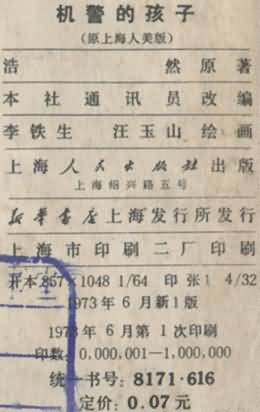 机警的孩子
(原上海人美版)
浩然原著
本社通讯员改编
李铁生 汪玉山绘画
上海人民出版社出版
上海绍兴路五号
新华书店上海发行所发行
上海市印刷二厂印刷
开本857×1048 1/64 印张1 4/32
1973年6月新1版
1973年6月第1次印刷
印数:0,000,001—1,000,000
统一书号:8171·616
定价:0.07元